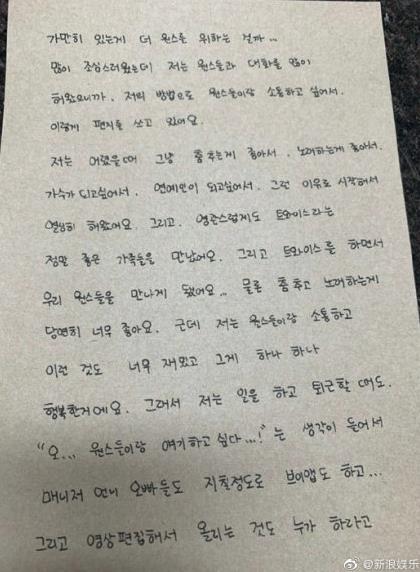 가만히 있는게 더 원스를 위하는 걸까...
많이 조심스러웠는데 저는 원스들과 대화를 많이
해왔으니까. 저의 방법으로 원스들이랑 소통하고 싶어서.
이렇게 편지를 쓰고 있어요.
저는 어렸을때 그냥 춤추는게 좋아서. 노래하는게 좋아서.
가수가 되고싶어서. 연예인이 되고싶어서. 그런 이유로 시작해서
열심히 해왔어요. 그리고. 영광스럽게도 트와이스라는
정말 좋은 가족들을 만났어요. 그리고 트와이스를 하면서
우리 원스들을 만나게 됐어요... 물론 춤추고 노래하는게
당연히 너무 좋아요. 근데 저는 원스들이랑 소통하고
이런 것도 너무 재밌고 그게 하나 하나
행복한거에요. 그래서 저는 일을 하고 퇴근할 때도.
"오... 원스들이랑 얘기하고 싶다...!" 는 생각이 들어서
매니저 언니 오빠들도 지칠정도로 브이앱도 하고...
그리고 영상편집해서 올리는 것도 누가 하라고
@新浪娱乐